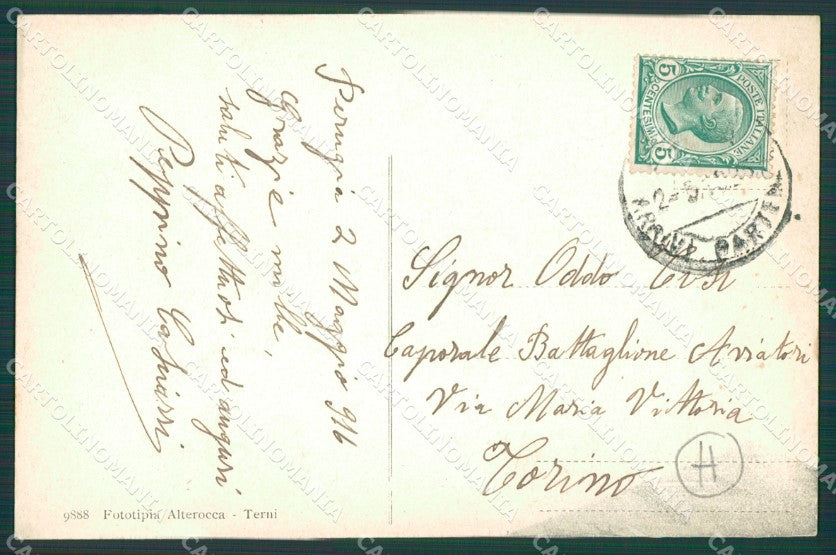 Perugia 2 Maggio 916
Grazie mille,
saluti affettuosi ed auguri
Peppino
POSTE ITALIANE
CENTESIMI
5
5
ARRIVI PARTEN
Signor Oddo
Caporale Battaglione Aviatori
Via Maria Vittoria
Torino
H
9888 Fototipia Alterocca - Terni
CARTOLINOMANIA